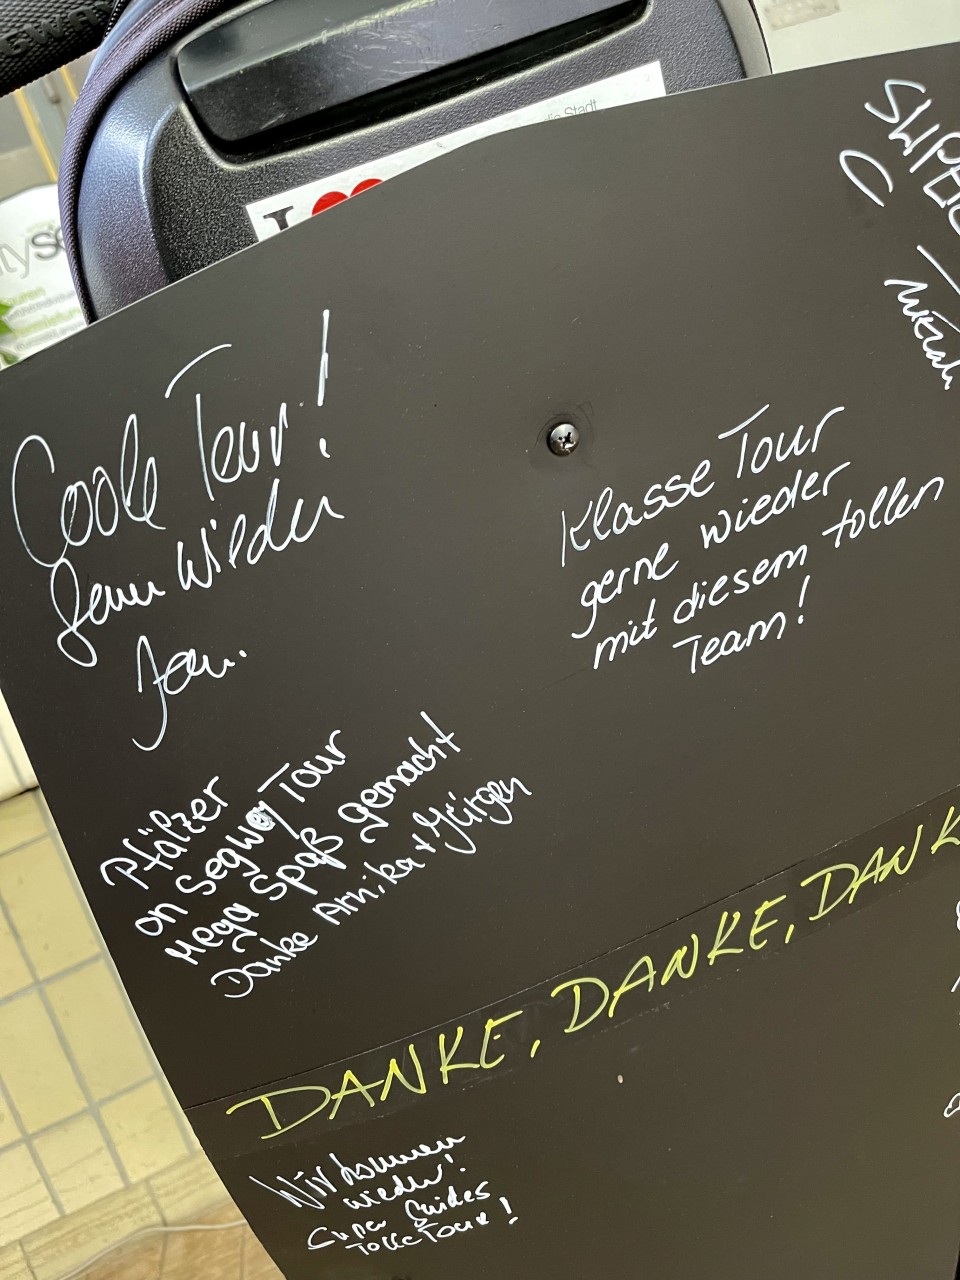 die Stadt
I
Coole Tour!
Gerne wieder
Klasse Tour
gerne wieder
mit diesem tollen
Team!
Pfälzer
on Segway Tour
Mega Spaß gemacht
Danke Annika + Jürgen
DANKE, DANKE, DANK
Wir kommen
wieder!
Super Guides
Tolle Tour!